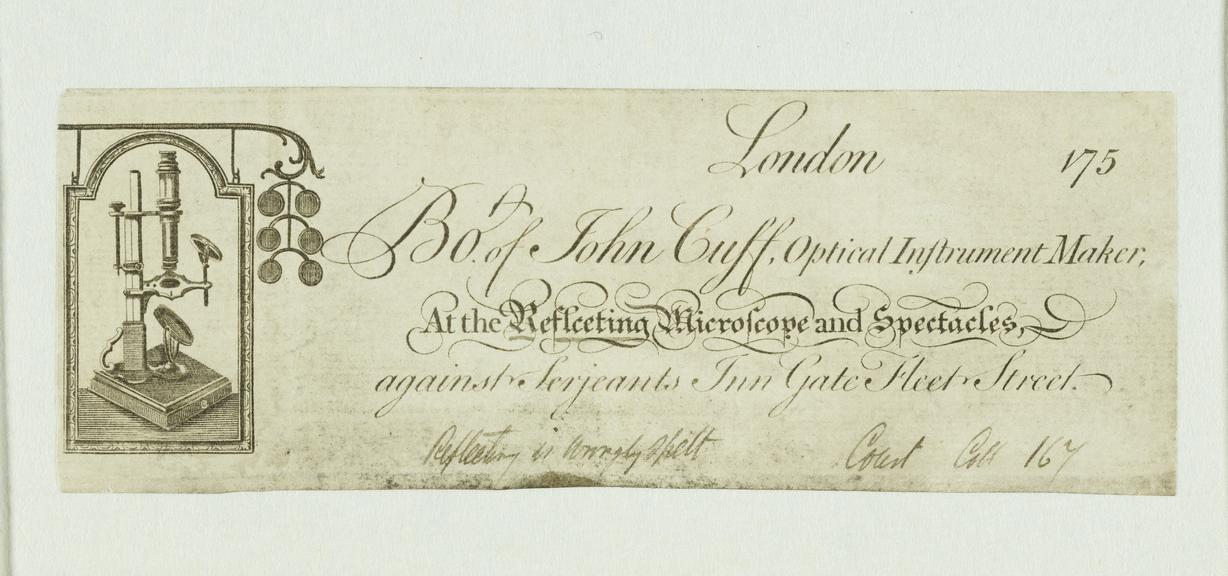 London 175
Bo.t of John Cuff, Optical Inſtrument Maker,
At the Reflceting Microſcope and Spectacles,
against Serjeants Inn Gate Fleet Street.
Reflecting is wrongly spelt Coll 167